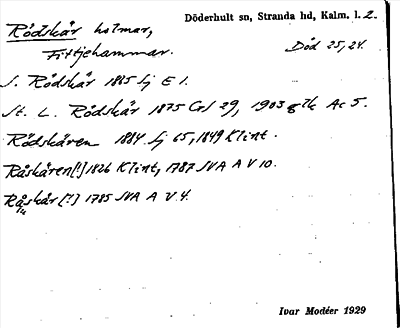 Döderhult sn, Stranda hd, Kalm. l. 2.
Rödskär holmar,
Fittjehammar.
Död 25,24.
S. Rödskär 1865 lj E 1.
St. L. Rödskär 1875 Crl 29, 1903 gtk Ac 5.
Rödskären 1884 lj 65, 1849 Klint.
Råskären [!] 1826 Klint, 1787 JVA A V 10.
Råskär [!] 1785 JVA A V 4.
Ivar Modéer 1929